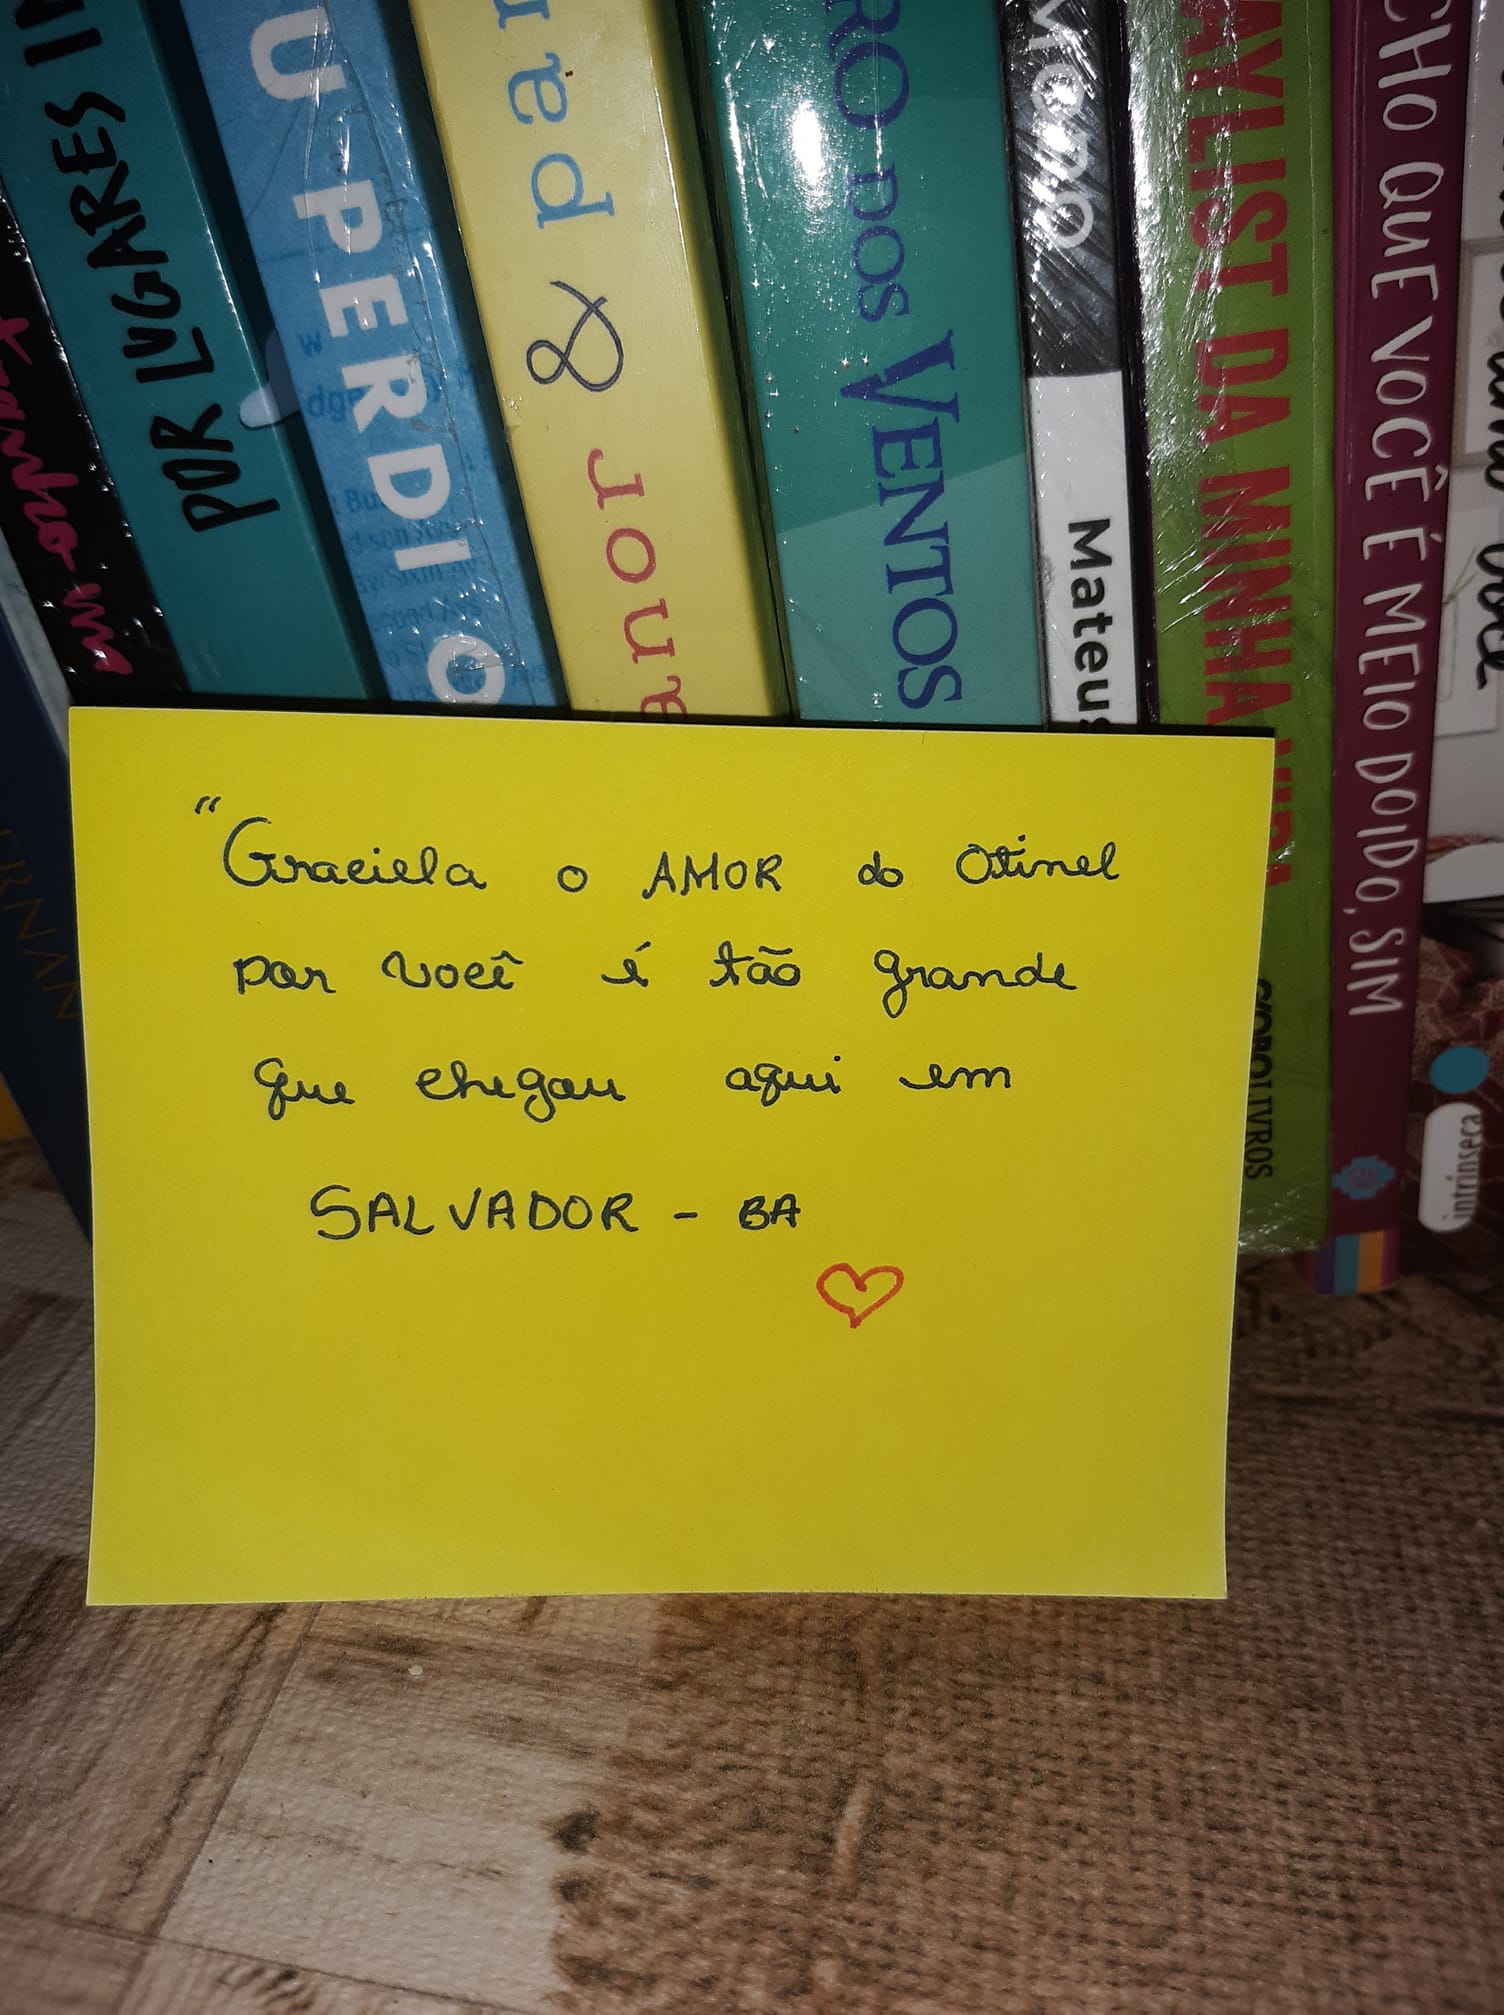 POR LUGARES IN
U PERDI O
par
& nor
RO DOS VENTOS
Mateus
AYLIST DA MINHA VIDA
GLOBOLIVROS
CHO QUE VOCÊ É MEIO DOIDO, SIM
você
intrínseca
ERNAN
"Graciela o AMOR do Otinel
por você é tão grande
que chegou aqui em
SALVADOR - BA